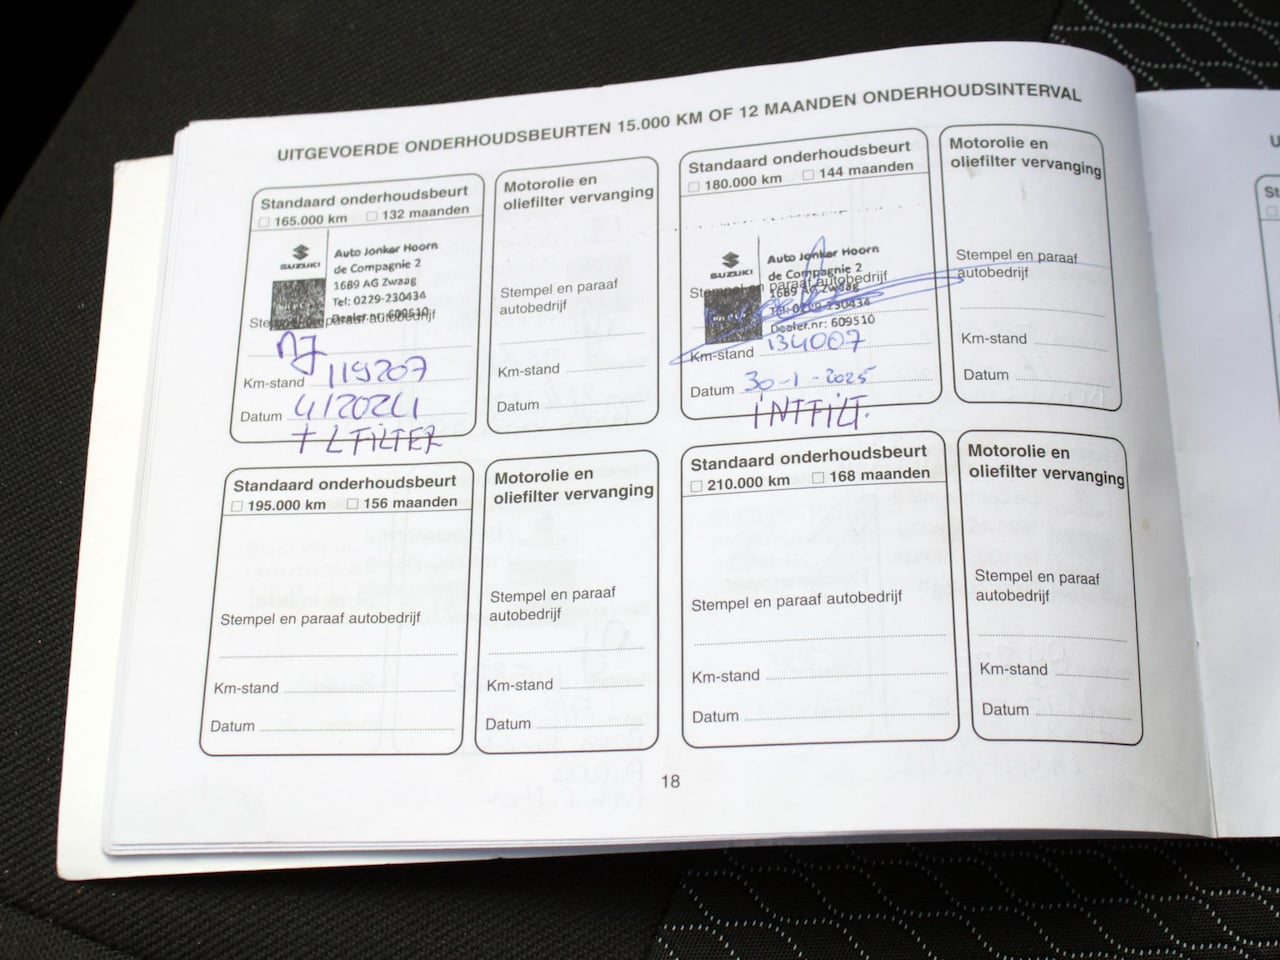 UITGEVOERDE ONDERHOUDSBEURTEN 15.000 KM OF 12 MAANDEN ONDERHOUDSINTERVAL
Standaard onderhoudsbeurt
☐ 165.000 km ☐ 132 maanden
SUZUKI
Auto Jonker Hoorn
de Compagnie 2
1689 AG Zwaag
Tel: 0229-230434
Dealer.nr: 609510
Stempel en paraaf autobedrijf
Km-stand 119207
Datum 4/2024
+ LFILTER
Motorolie en
oliefilter vervanging
Stempel en paraaf
autobedrijf
Km-stand
Datum
Standaard onderhoudsbeurt
☐ 180.000 km ☐ 144 maanden
SUZUKI
Auto Jonker Hoorn
de Compagnie 2
1689 AG Zwaag
Tel: 0229-230434
Dealer.nr: 609510
Stempel en paraaf autobedrijf
Km-stand 134007
Datum 30-1-2025
INTFILT.
Motorolie en
oliefilter vervanging
Stempel en paraaf
autobedrijf
Km-stand
Datum
Standaard onderhoudsbeurt
☐ 195.000 km ☐ 156 maanden
Stempel en paraaf autobedrijf
Km-stand
Datum
Motorolie en
oliefilter vervanging
Stempel en paraaf
autobedrijf
Km-stand
Datum
Standaard onderhoudsbeurt
☐ 210.000 km ☐ 168 maanden
Stempel en paraaf autobedrijf
Km-stand
Datum
Motorolie en
oliefilter vervanging
Stempel en paraaf
autobedrijf
Km-stand
Datum
18